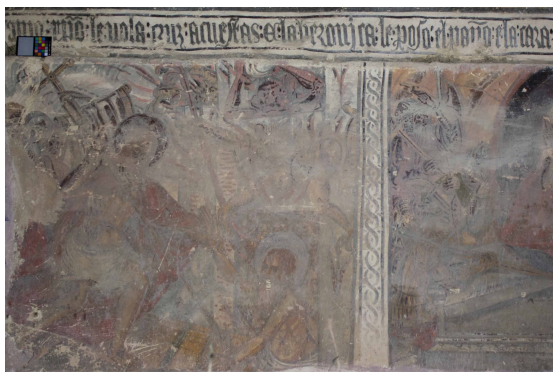 xp̃o: leuo la: cruz: acuestas: e: la beronica: le poso: el paño: e la cara: